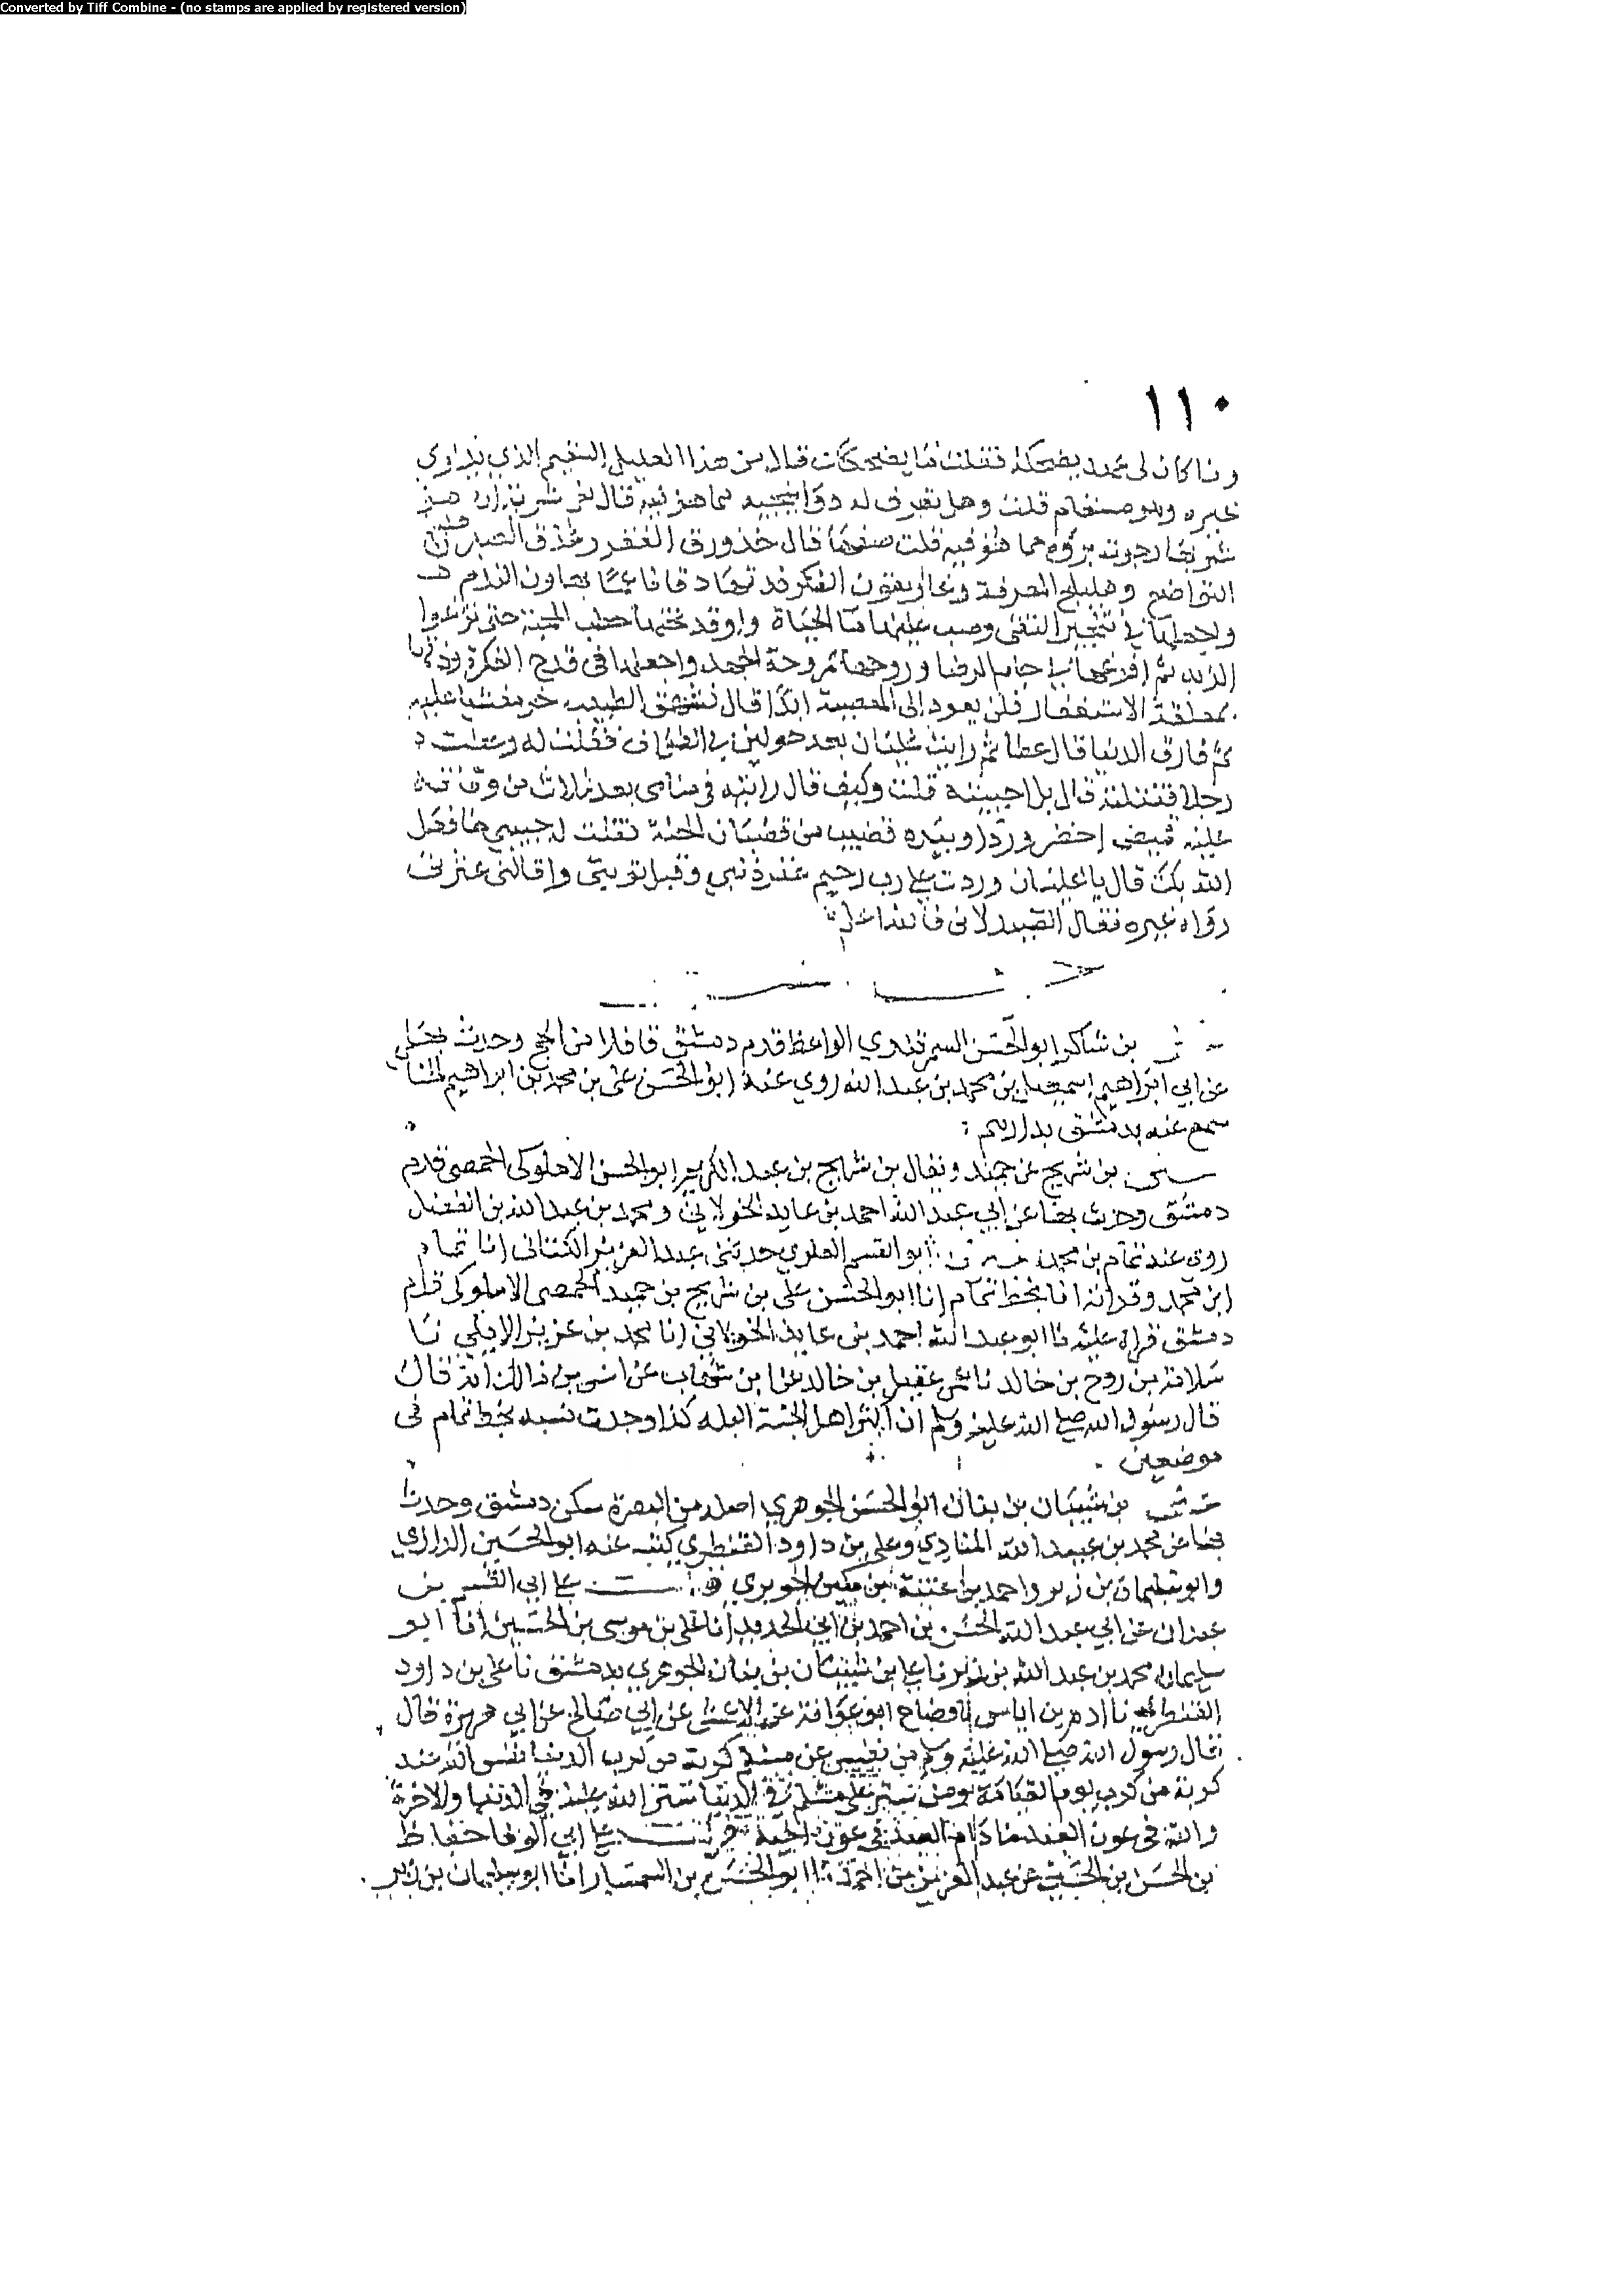 Converted by Tiff Combine - (no stamps are applied by registered version)
١١٠
وما كان لي عهد يضحكه فقلت ما يضحكك قال من هذا العليل السقيم الذي يداوي
غيره وهو مسقام قلت وهل تعرف له دوا ينجيه مما هو فيه قال نعم شربة ان هو
شربها رجوت برؤه مما هو فيه قلت صفها قال خذ ورق الفقر وعرق الصبر مع
التواضع وهليلج المعرفة الفكر بهاون الندم
واجعله في طنجير التقى وصب عليه ما الحياة واوقد تحتها حطب المحبة حتى
الزبد ثم افرغها في جام الرضا وروحها بمروحة الحمد واجعلها في قدح الفكرة وذقها
بملعقة الاستغفار فلن يعود الى المعصية ابدا قال فشهق الطبيب خر مغشيا عليه
ثم فارق الدنيا قال عطا ثم رايت عليان بعد حولين في الطواف فقلت له وعظت
رجلا فقتلته قال بل احييته قلت وكيف قال رايته في منامي بعد ثلاث من وفاته
عليه قميص اخضر وردا وبيده قضيب من قضبان الجنة فقلت له حبيبي ما فعل
الله بك قال يا عليان وردت على رب رحيم غفر ذنبي وقبل توبتي واقالني عثرتي
رواه غيره فقال الصيدلاني فالله اعلم
بن شاكر ابو الحسن السمرقندي الواعظ قدم دمشق قافلا من الحج وحدث
عن ابي ابراهيم اسمعيل بن محمد بن عبد الله روي عنه ابو الحسن على بن محمد بن ابراهيم
سمع عنه بدمشق
بن شريح بن حميد ويقال بن شريح بن عبد الكريم ابو الحسن الاملوكي الحمصي قدم
دمشق وحدث بها عن ابي عبد الله احمد بن عايد الخولاني ومحمد بن عبد الله بن الفضل
روى عنه تمام بن محمد ابو القسم العلوي حدثني عبد العزيز الكتاني انا تمام
ابن محمد وقراته انا بخط تمام انا ابو الحسن على بن شريح بن حميد الحمصي الاملوكي قدم
دمشق قراة عليه نا ابو عبد الله احمد بن عايد الخولاني انا محمد بن عزيز الايلي نا
سلامة بن روح بن خالد نا عمي عقيل بن خالد عن ابن شهاب عن انس بن مالك انه قال
قال رسول الله صلى الله عليه وسلم ان اكثر اهل الجنة البله كذا وجدت نسبه بخط تمام في
موضعين
بن شيبان بن بنان ابو الحسن الجوهري اصله من البصرة سكن دمشق وحدث
بها عن محمد بن عبيد الله المنادي وعلى بن داود القنطري كتب عنه ابو الحسين الرازي
وابو سليمان بن زبر واحمد بن عتبة بن مكين الجوبري على ابي القسم بن
عبدان عن ابي عبد الله الحسن بن احمد بن ابي الحديد انا على بن موسى بن الحسين انا ابو
سليمان محمد بن عبد الله بن زبر نا على بن شيبان بن بنان الجوهري بدمشق نا على بن داود
القنطري نا ادم بن اياس نا وضاح ابو عوانة عن الاعمش عن ابي صالح عن ابي هريرة قال
قال رسول الله صلى الله عليه وسلم من نفس عن مسلم كربة من كرب الدنيا نفس الله عنه
كربة من كرب يوم القيامة ومن ستر على مسلم في الدنيا ستر الله عليه في الدنيا والاخرة
والله في عون العبد ما دام العبد في عون اخيه على ابي الوفا حفاظ
بن الحسن بن الحسين عن عبد العزيز بن احمد انا ابو الحسن بن السمسار انا ابو سليمان بن زبر